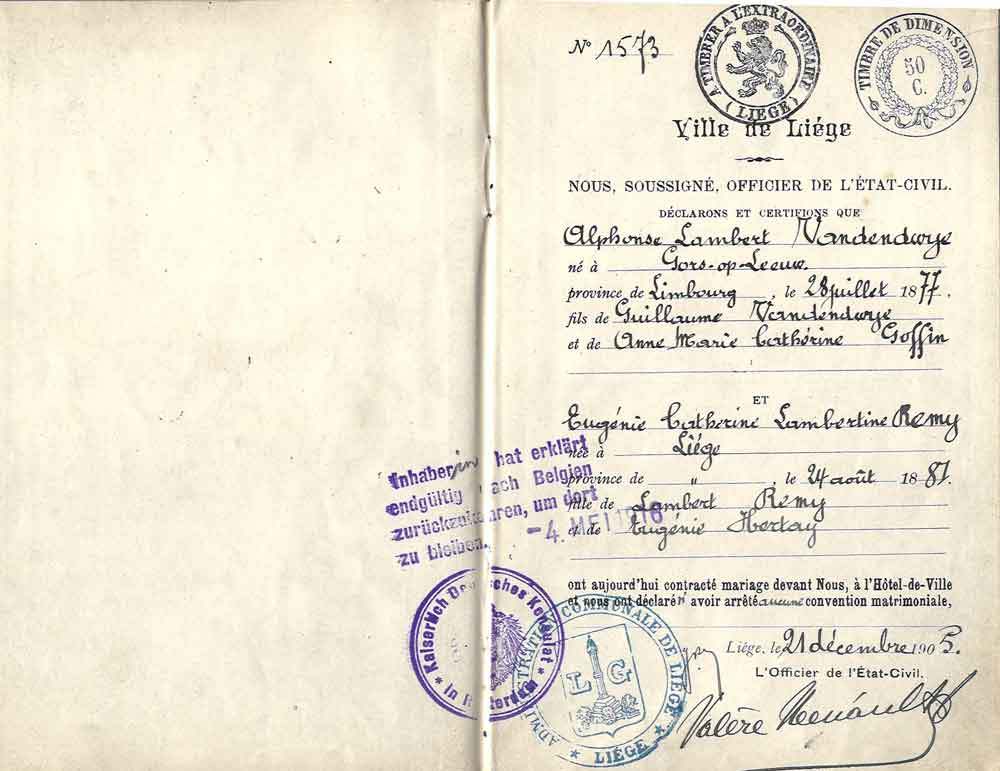 Nº 1573
A TIMBRER A L'EXTRAORDINAIRE
(LIÉGE)
TIMBRE DE DIMENSION
50
C.
Ville de Liége
NOUS, SOUSSIGNÉ, OFFICIER DE L'ÉTAT-CIVIL.
DÉCLARONS ET CERTIFIONS QUE
Alphonse Lambert Vandendwye
né à Gors-op-Leeuw.
province de Limbourg, le 28 juillet 1877.
fils de Guillaume Vandendwye
et de Anne Marie Cathérine Goffin
ET
Eugénie Catherine Lambertine Remy
née à Liége
province de „ , le 24 août 1881.
fille de Lambert Remy
et de Eugénie Hertay
Inhaber in hat erklärt
endgültig nach Belgien
zurückzukehren, um dort
zu bleiben.
-4. MEI 1916
ont aujourd'hui contracté mariage devant Nous, à l'Hôtel-de-Ville
et nous ont déclaré n' avoir arrêté aucune convention matrimoniale,
Liége, le 21 décembre 1905.
L'Officier de l'État-Civil.
Valère Henault
Kaiserlich Deutsches Konsulat
* in Rotterdam *
ADMINISTRATION COMMUNALE DE LIÉGE
L G
* LIÉGE *